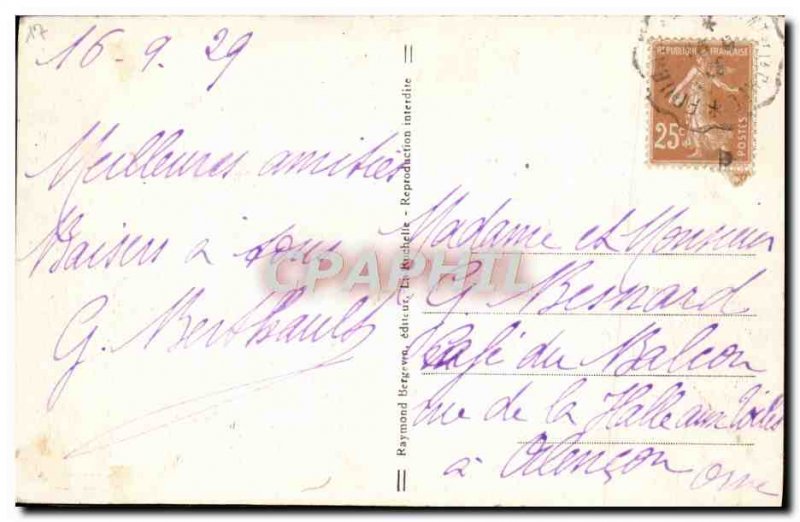 17
16-9-29
Meilleures amitiés
Baisers à tous
G. Berthault
Raymond Bergevin, éditeur, La Rochelle - Reproduction interdite
RÉPUBLIQUE FRANÇAISE
25c
POSTES
Madame et Monsieur
G. Besnard
Café du Balcon
rue de la Halle aux Toiles
à Alençon Orne
CPAPHIL